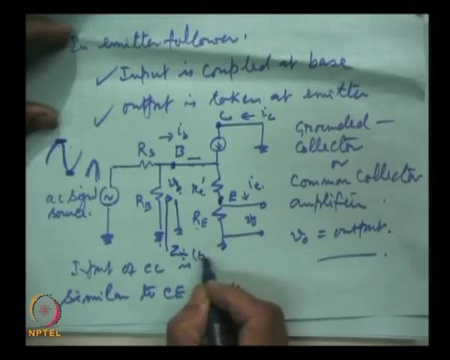 In emitter follower.
✓ Input is coupled at base
✓ output is taken at emitter
C
ic
ib
Rs
B
re'
E
ie
RB
RE
vo
ac signal
source.
Grounded –
collector
or
Common collector
amplifier.
vo = output.
Input of CC is
Similar to CE
NPTEL